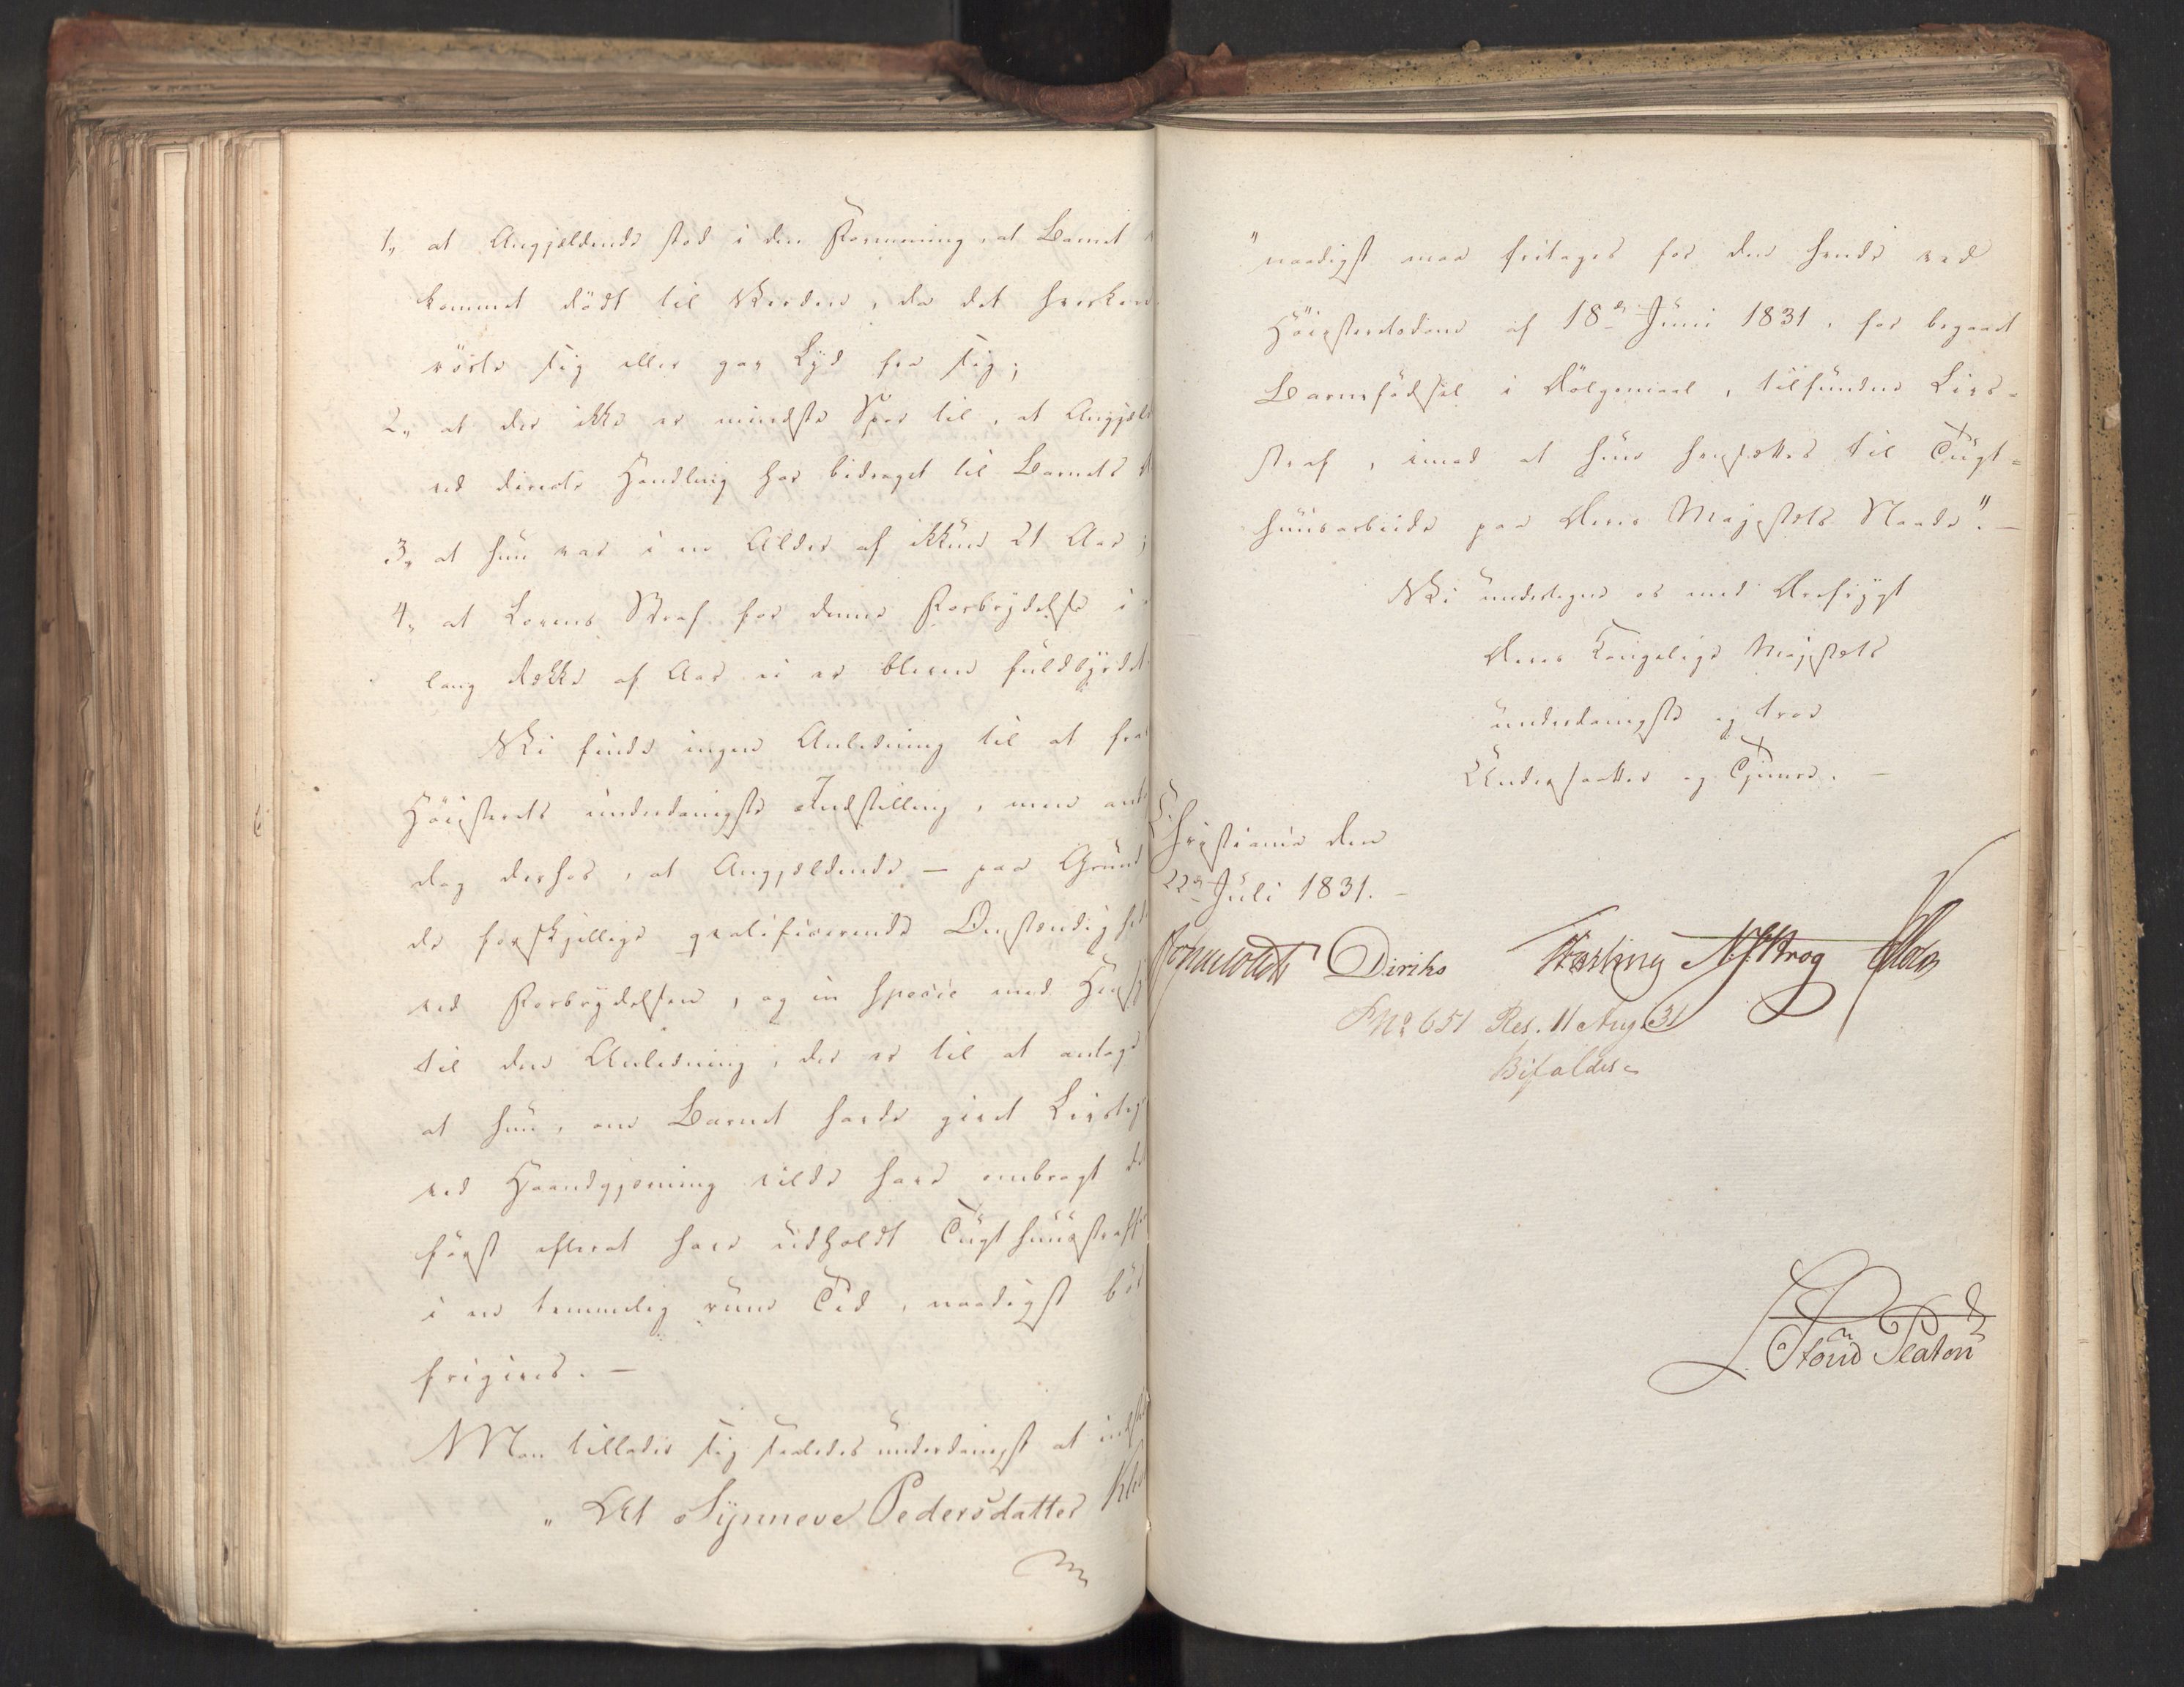 1, at Angjeldende stod i den Formening, at Barnet
kommet dödt til Verden, da det hverken
rörte sig eller gav Lyd fra sig;
2, at der ikke er mindste Spor til, at Angjeld
ved directe Handling har bidraget til Barnets
3, at hun var i en Alder af ikkun 21 Aar;
4, at Lovens Straf for denne Forbrydelse i
lang Række af Aar ei er bleven fuldbyrdet
Vi finde ingen Anledning til at fra
Höiesterets underdanigste Indstilling, men
dog derhos, at Angjeldende – paa Grund
de forskjellige qvalificerende Omstændighed
ved Forbrydelsen, og in specie med Hensy
til den Anledning, der er til at antage
at hun, om Barnet havde givet Livsteg
ved Haandgjerning vilde have ombragt
först efterat have udholdt Tugthuusstraffe
i en temmelig rum Tid, naadigst bör
frigives. –
Man tillader sig saaledes underdanigst at indst
„At Synneve Pedersdatter
"naadigst maa fritages for den hende ved
Höiesteretsdom af 18de Juni 1831, for begaaet
Barnefödsel i Dölgsmaal, tilfundne Livs-
straf, imod at hun hensættes til Tugt=
huusarbeide paa Deres Majestets Naade". –
Vi undertegne os med Ærefrygt
Deres Kongelige Majestets
underdanigste og troe
Undersaatter og Tjenere. –
Christiania den
22de Juli 1831. –
Diriks N. J. Krog
No 651 Res. 11 Aug. 31
Bifaldes